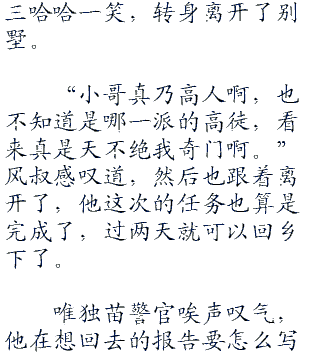 三哈哈一笑，转身离开了别
墅。
“小哥真乃高人啊，也
不知道是哪一派的高徒，看
来真是天不绝我奇门啊。”
风叔感叹道，然后也跟着离
开了，他这次的任务也算是
完成了，过两天就可以回乡
下了。
唯独苗警官唉声叹气，
他在想回去的报告要怎么写